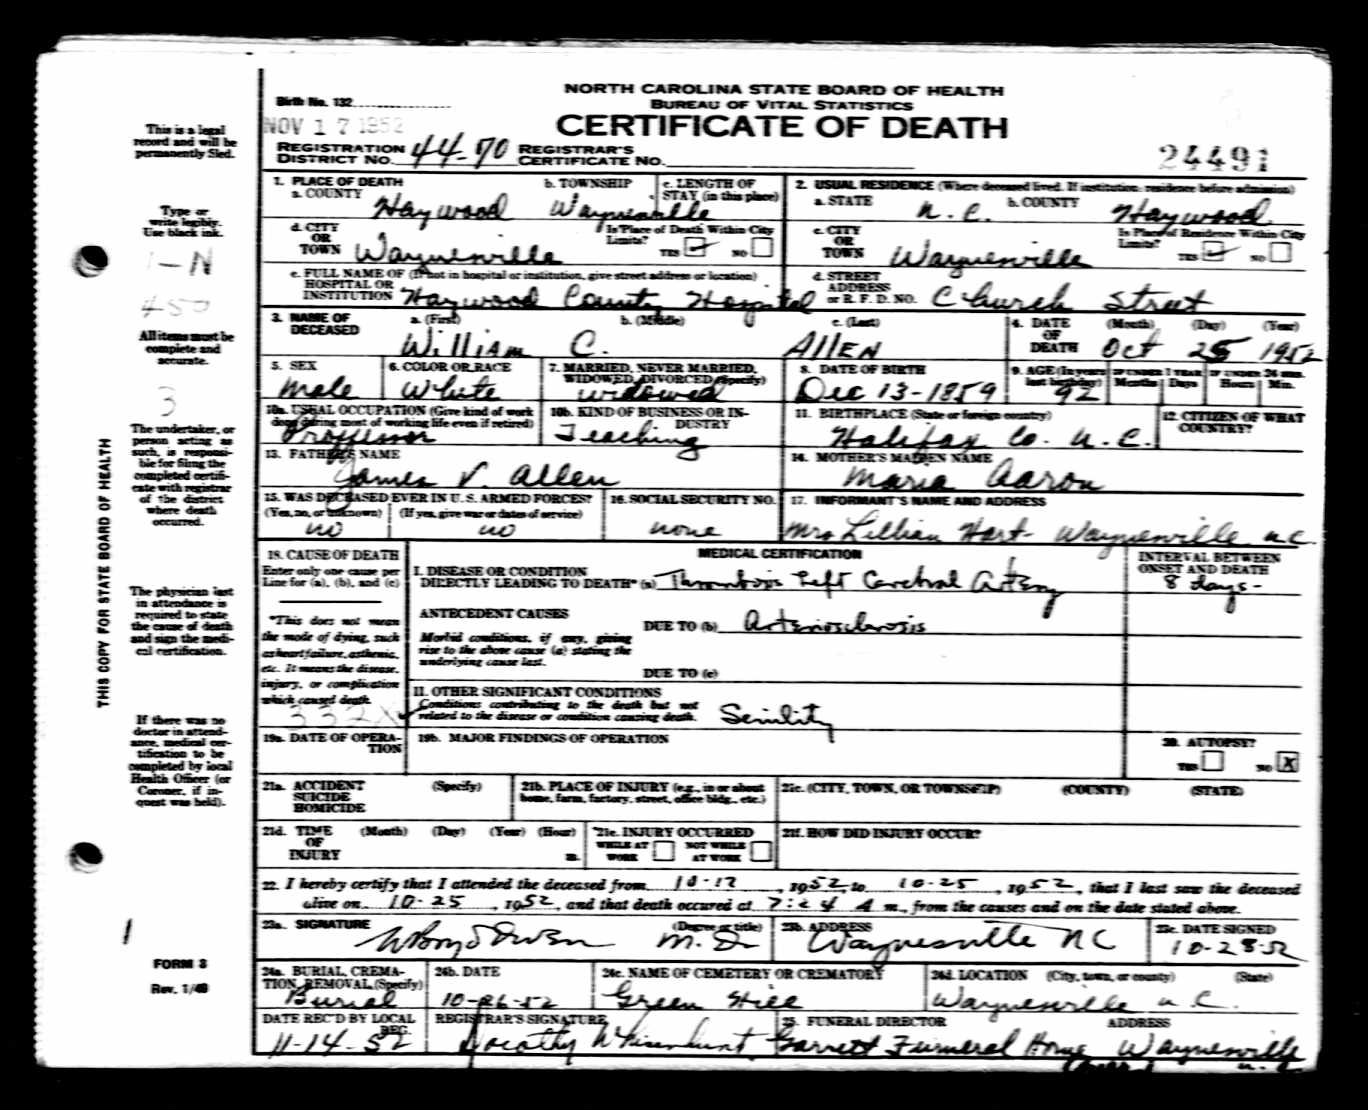 NORTH CAROLINA STATE BOARD OF HEALTH
BUREAU OF VITAL STATISTICS
CERTIFICATE OF DEATH
Birth No. 132
NOV 17 1952
REGISTRATION DISTRICT NO. 44-70 REGISTRAR'S CERTIFICATE NO.
24491
This is a legal
record and will be
permanently filed.
Type or
write legibly.
Use black ink.
1-N
450
All items must be
complete and
accurate.
3
The undertaker, or
person acting as
such, is responsi-
ble for filing the
completed certifi-
cate with registrar
of the district
where death
occurred.
The physician last
in attendance is
required to state
the cause of death
and sign the medi-
cal certification.
If there was no
doctor in attend-
ance, medical cer-
tification to be
completed by local
Health Officer (or
Coroner, if in-
quest was held).
1
FORM 8
Rev. 1/49
THIS COPY FOR STATE BOARD OF HEALTH
1. PLACE OF DEATH
a. COUNTY Haywood
b. TOWNSHIP Waynesville
c. LENGTH OF STAY (in this place)
2. USUAL RESIDENCE (Where deceased lived. If institution: residence before admission)
a. STATE N. C. b. COUNTY Haywood
d. CITY OR TOWN Waynesville
Is Place of Death Within City Limits? YES NO
c. CITY OR TOWN Waynesville
Is Place of Residence Within City Limits? YES NO
e. FULL NAME OF (If not in hospital or institution, give street address or location)
HOSPITAL OR INSTITUTION Haywood County Hospital
d. STREET ADDRESS or R. F. D. NO. Church Street
3. NAME OF DECEASED a. (First) b. (Middle) c. (Last)
William C. Allen
4. DATE OF DEATH (Month) (Day) (Year)
Oct 25 1952
5. SEX Male
6. COLOR OR RACE White
7. MARRIED, NEVER MARRIED, WIDOWED, DIVORCED (Specify) widowed
8. DATE OF BIRTH Dec 13-1859
9. AGE (In years last birthday) 92
IF UNDER 1 YEAR Months Days
IF UNDER 24 HRS. Hours Min.
10a. USUAL OCCUPATION (Give kind of work done during most of working life even if retired) Proffessor
10b. KIND OF BUSINESS OR INDUSTRY Teaching
11. BIRTHPLACE (State or foreign country) Halifax Co. N. C.
12. CITIZEN OF WHAT COUNTRY?
13. FATHER'S NAME James V. Allen
14. MOTHER'S MAIDEN NAME Maria Aaron
15. WAS DECEASED EVER IN U. S. ARMED FORCES?
(Yes, no, or unknown) (If yes, give war or dates of service)
no no
16. SOCIAL SECURITY NO. none
17. INFORMANT'S NAME AND ADDRESS
Mrs Lillian Hart- Waynesville n.c.
18. CAUSE OF DEATH
Enter only one cause per
Line for (a), (b), and (c)
*This does not mean
the mode of dying, such
as heart failure, asthenia,
etc. It means the disease,
injury, or complication
which caused death.
332X
MEDICAL CERTIFICATION
INTERVAL BETWEEN ONSET AND DEATH
I. DISEASE OR CONDITION
DIRECTLY LEADING TO DEATH* (a) Thrombosis Left Cerebral Artery 8 days-
ANTECEDENT CAUSES
DUE TO (b) Arteriosclerosis
Morbid conditions, if any, giving
rise to the above cause (a) stating the
underlying cause last.
DUE TO (c)
II. OTHER SIGNIFICANT CONDITIONS
Conditions contributing to the death but not
related to the disease or condition causing death. Senility
19a. DATE OF OPERATION
19b. MAJOR FINDINGS OF OPERATION
20. AUTOPSY?
YES NO X
21a. ACCIDENT SUICIDE HOMICIDE (Specify)
21b. PLACE OF INJURY (e.g., in or about home, farm, factory, street, office bldg., etc.)
21c. (CITY, TOWN, OR TOWNSHIP) (COUNTY) (STATE)
21d. TIME OF INJURY (Month) (Day) (Year) (Hour) m.
21e. INJURY OCCURRED
WHILE AT WORK NOT WHILE AT WORK
21f. HOW DID INJURY OCCUR?
22. I hereby certify that I attended the deceased from 10-17, 1952, to 10-25, 1952, that I last saw the deceased
alive on 10-25, 1952, and that death occured at 7:24 A m., from the causes and on the date stated above.
23a. SIGNATURE (Degree or title)
Boyd Owen M. D.
23b. ADDRESS
Waynesville NC
23c. DATE SIGNED
10-28-52
24a. BURIAL, CREMATION, REMOVAL (Specify) Burial
24b. DATE 10-26-52
24c. NAME OF CEMETERY OR CREMATORY Green Hill
24d. LOCATION (City, town, or county) (State)
Waynesville n. C.
DATE REC'D BY LOCAL REG. 11-14-52
REGISTRAR'S SIGNATURE Dorothy Whisenhunt
25. FUNERAL DIRECTOR ADDRESS
Garrett Funeral Home Waynesville
n. C.